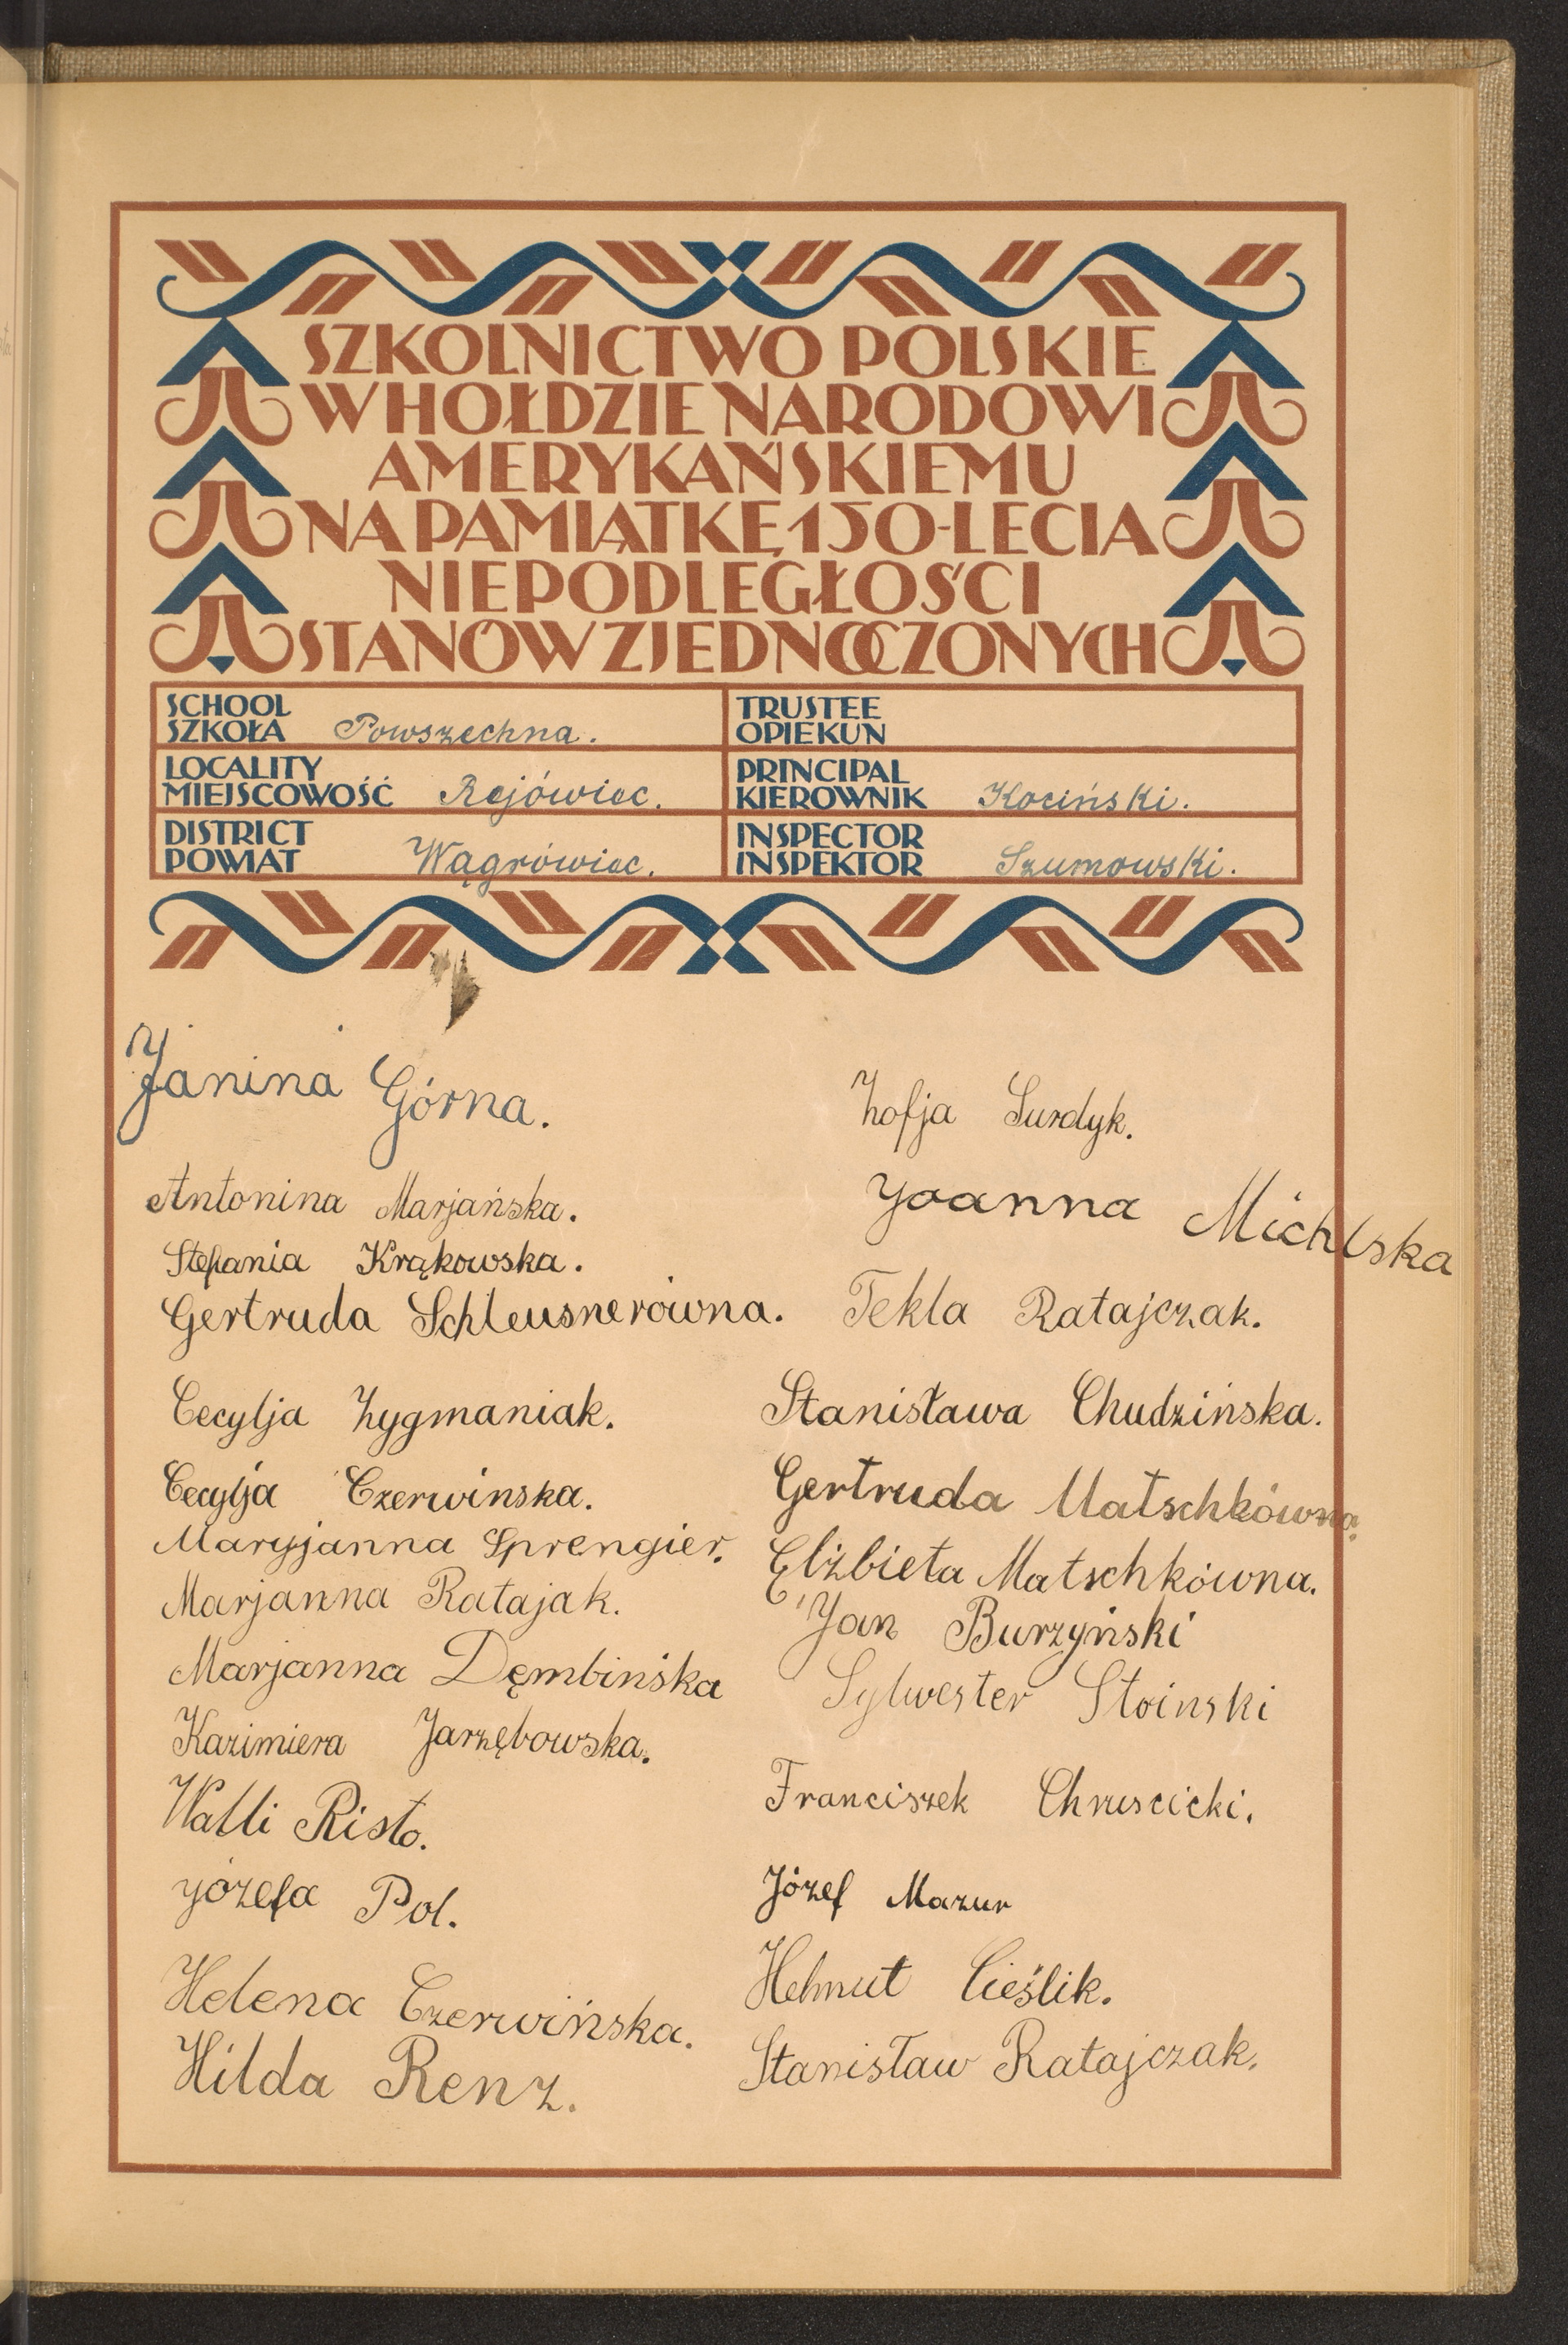 SZKOLNICTWO POLSKIE
W HOŁDZIE NARODOWI
AMERYKAŃSKIEMU
NA PAMIĄTKĘ 150-LECIA
NIEPODLEGŁOŚCI
STANÓW ZJEDNOCZONYCH
SCHOOL
SZKOŁA Powszechna.
TRUSTEE
OPIEKUN
LOCALITY
MIEJSCOWOŚĆ Rejówiec.
PRINCIPAL
KIEROWNIK Kociński.
DISTRICT
POWIAT Wągrówiec.
INSPECTOR
INSPEKTOR Szumowski.
Janina Górna.
Antonina Marjańska.
Stefania Krąkowska.
Gertruda Schleusnerówna.
Cecylja Zygmaniak.
Cecylja Czerwinska.
Maryjanna Sprengier.
Marjanna Ratajak.
Marjanna Dęmbińska
Kazimiera Jarzębowska.
Walli Risto.
Józefa Pol.
Helena Czerwińska.
Hilda Renz.
Zofja Surdyk.
Joanna Michlska
Tekla Ratajczak.
Stanisława Chudzińska.
Gertruda Matschkówna.
Elżbieta Matschkówna.
Jan Burzyński
Sylwester Stoinski
Franciszek Chruscicki.
Józef Mazur
Helmut Cieślik.
Stanisław Ratajczak.